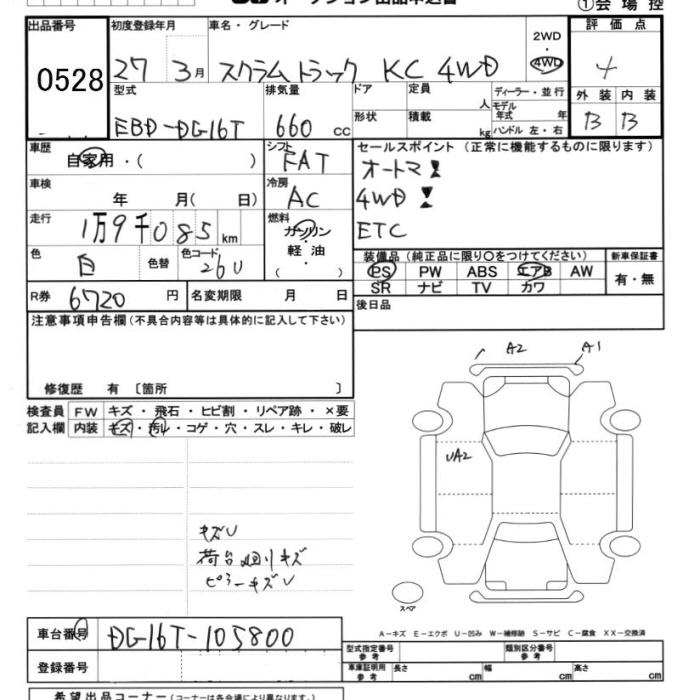 ①会場控
出品番号 初度登録年月 車名・グレード 2WD・4WD 評価点
0528 27 3月 スクラムトラック KC 4WD 4
型式 排気量 ドア 定員 人 ディーラー・並行 外装 内装
EBD-DG16T 660 cc 形状 積載 kg モデル年式 年 ハンドル 左・右 B B
車歴 自家用・( ) シフト FAT セールスポイント (正常に機能するものに限ります)
車検 年 月( 日) 冷房 AC オートマ
4WD
走行 1万9千085km 燃料 ガソリン・軽油・( ) ETC
色 白 色替 色コード 26U 装備品 (純正品に限り○をつけてください) 新車保証書
PS PW ABS エアB AW 有・無
SR ナビ TV カワ
R券 6720 円 名変期限 月 日 後日品
注意事項申告欄 (不具合内容等は具体的に記入して下さい)
修復歴 有 〔箇所 〕
検査員 FW キズ・飛石・ヒビ割・リペア跡・×要
記入欄 内装 キズ・汚レ・コゲ・穴・スレ・キレ・破レ
A2 A1
UA2
キズU
荷台廻りキズ
ピラーキズU
スペア
A-キズ E-エクボ U-凹み W-補修跡 S-サビ C-腐食 XX-交換済
車台番号 DG16T-105800
型式指定番号 参考 類別区分番号 参考
登録番号 車庫証明用 参考 長さ cm 幅 cm 高さ cm
希望出品コーナー (コーナーは各会場により異なります。)